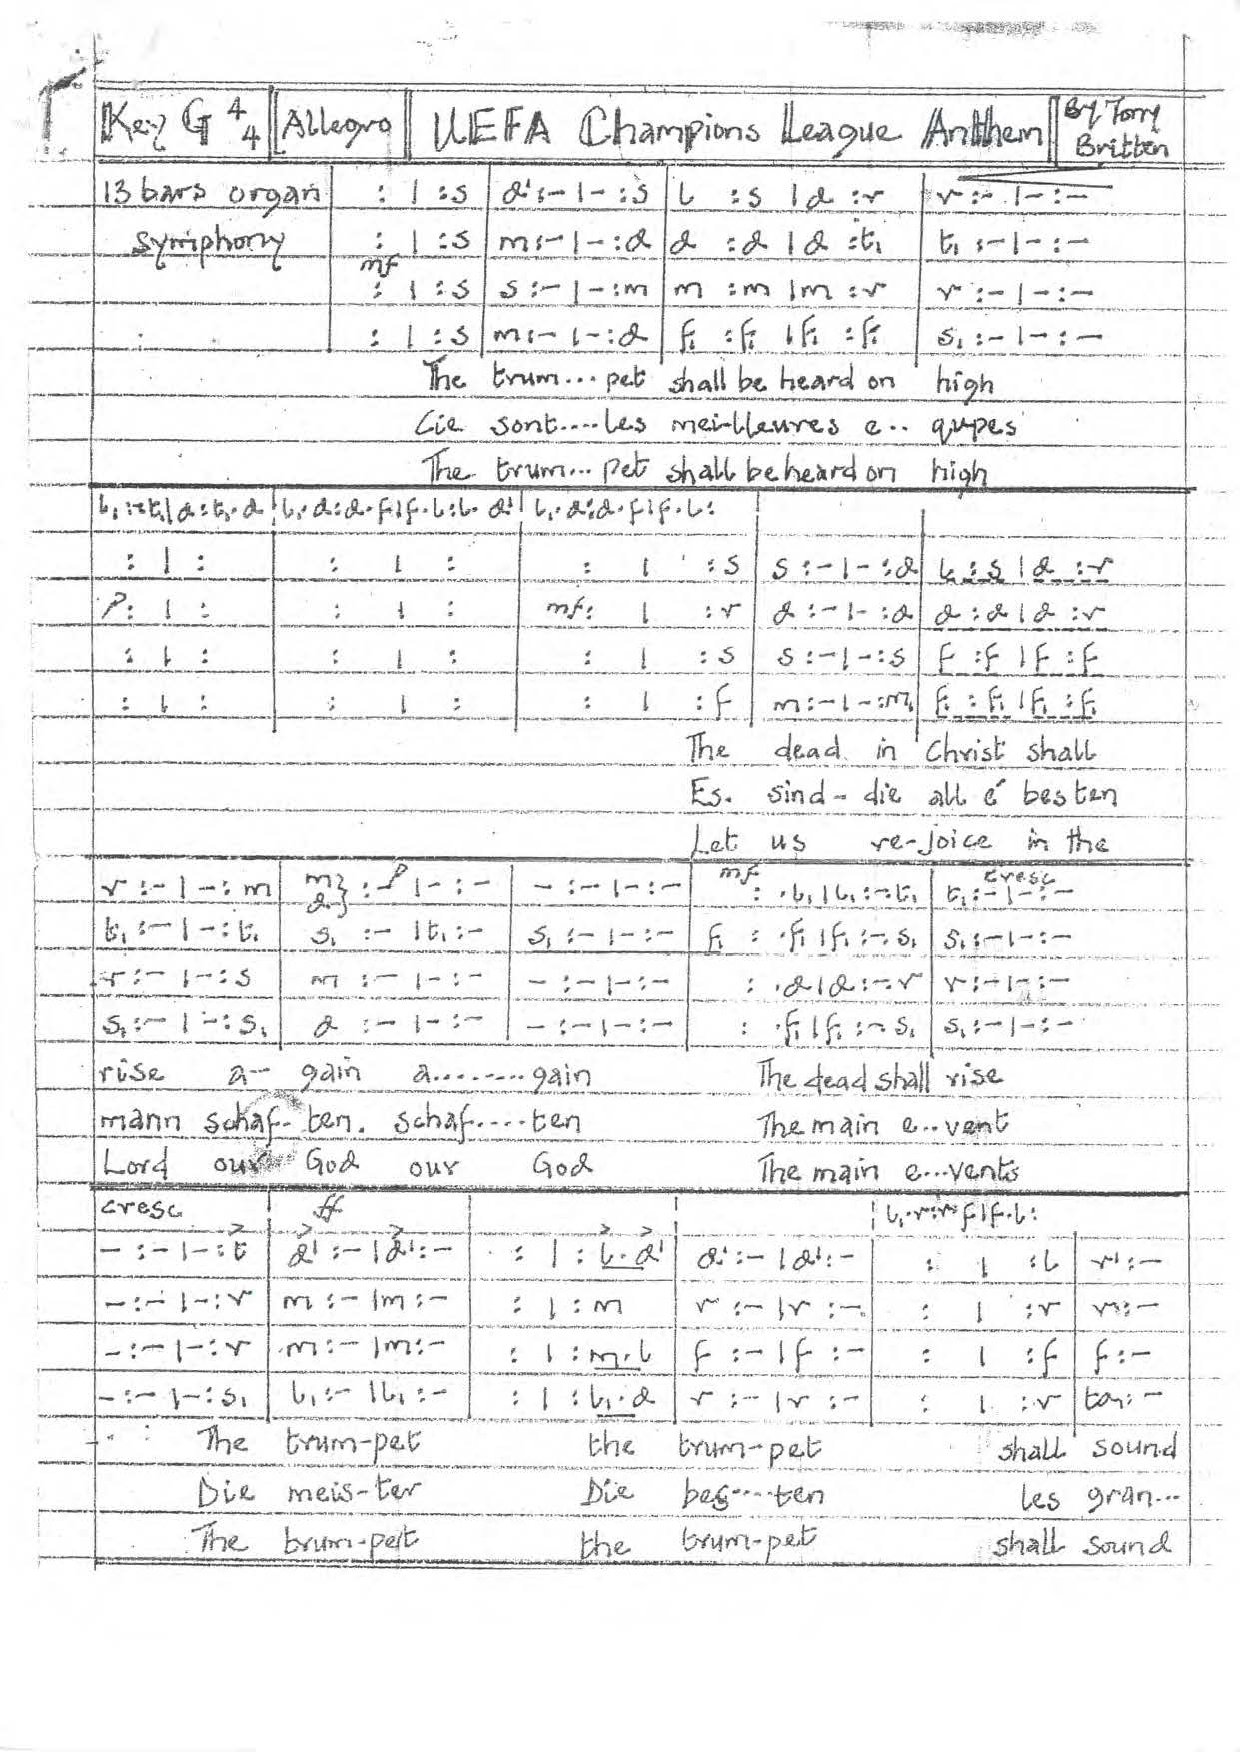 Key G 4/4 Allegro UEFA Champions League Anthem By Tony Britten
13 bars organ : | :s d':-|-:s l :s |d :r r:-|-:-
symphony : | :s m:-|-:d d :d |d :t₁ t₁:-|-:-
mf
: | :s s:-|-:m m :m |m :r r:-|-:-
: | :s m:-|-:d f₁ :f₁ |f₁ :f₁ s₁:-|-:-
The trum... pet shall be heard on high
Cie sont....les meilleures e.. qupes
The trum... pet shall be heard on high
l₁:-t₁|d:t₁.d l₁.d:d.f|f.l:l.d' l₁.d:d.f|f.l:
: | : : | : : | :s s:-|-:d l :s |d :r
p: | : : | : mf: | :r d:-|-:d d :d |d :r
: | : : | : : | :s s:-|-:s f :f |f :f
: | : : | : : | :f m:-|-:m₁ f₁ :f₁ |f₁ :f₁
The dead in Christ shall
Es. sind- die all é besten
Let us re-joice in the
p mf cresc
r:-|-:m m/d}:-|-:- -:-|-:- : .l₁|l₁:-.t₁ t₁:-|-:-
t₁:-|-:t₁ s₁:-|t₁:- s₁:-|-:- f₁ : .f₁|f₁:-.s₁ s₁:-|-:-
r:-|-:s m:-|-:- -:-|-:- : .d|d:-.r r:-|-:-
s₁:-|-:s₁ d:-|-:- -:-|-:- : .f₁|f₁:-.s₁ s₁:-|-:-
rise a-- gain a........gain The dead shall rise
mann schaf- ten. schaf.....ten The main e..vent
Lord our God our God The main e...vents
cresc ff l₁.r:r.f|f.l:
-:-|-:t d':-|d':- : | :l.d' d':-|d':- : | :l r':-
-:-|-:r m:-|m:- : | :m r:-|r:- : | :r r:-
-:-|-:r m:-|m:- : | :m.l f:-|f:- : | :f f:-
-:-|-:s₁ l₁:-|l₁:- : | :l₁.d r:-|r:- : | :r ta₁:-
The trum-pet the trum-pet shall sound
Die meis-ter Die bes....ten les gran...
The trum-pet the trum-pet shall sound